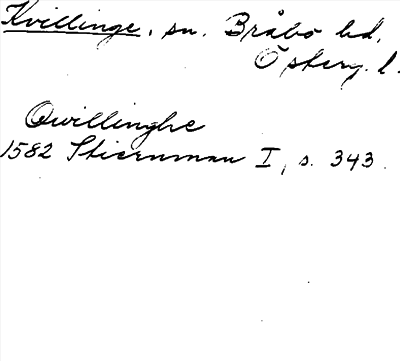 Kvillinge, sn. Bråbo hd,
Östberg. l.
Qwillinghe
1582 Stiernman I, s. 343.